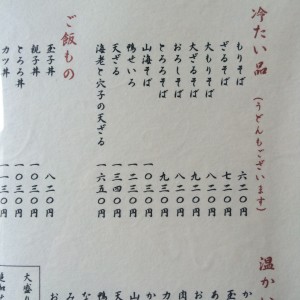 冷たい品(うどんもございます)
もりそば 六二〇円
ざるそば 七二〇円
大もりそば 八二〇円
大ざるそば 九二〇円
おろしそば 八二〇円
とろろそば 九三〇円
山海そば 一〇三〇円
鴨せいろ 一二四〇円
天ざる 一三四〇円
海老と穴子の天ざる 一六五〇円
ご飯もの
玉子丼 八二〇円
親子丼 一〇三〇円
とろろ丼 一〇三〇円
カツ丼 一一三〇円
温かい
か
玉
あ
お
肉
カ
か
山
天
鴨
な
み
お
大盛り